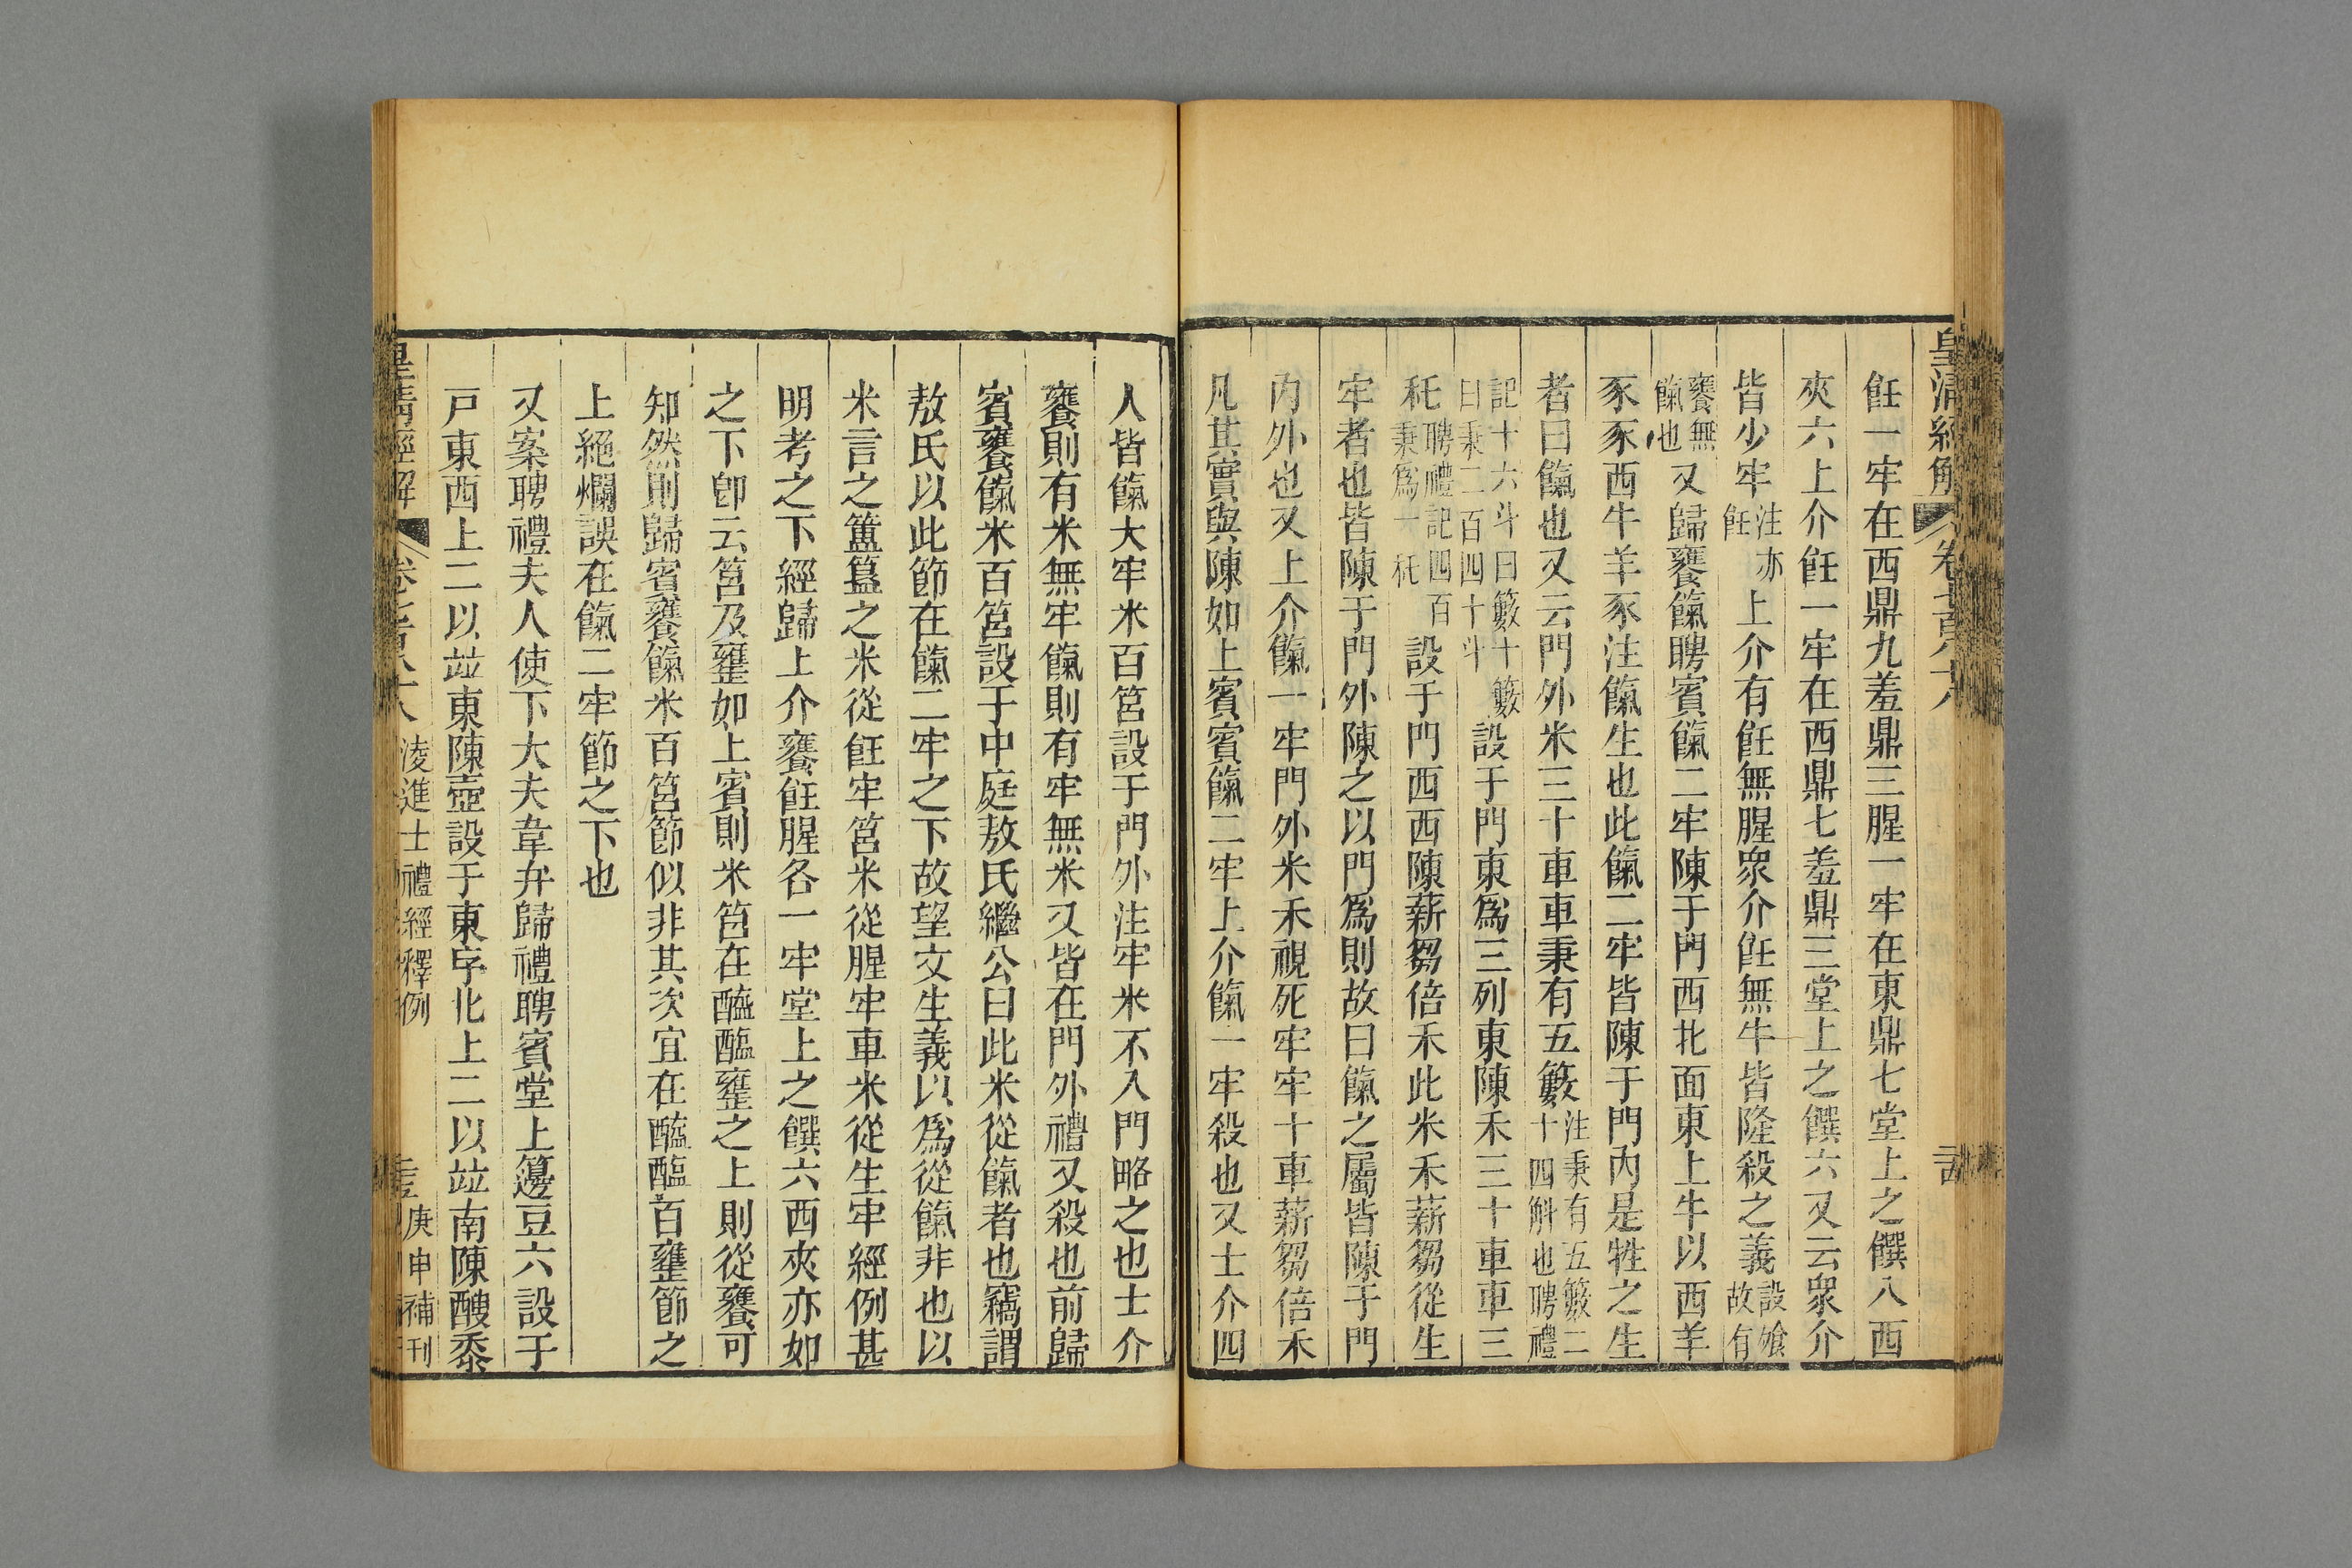 皇清經解 卷七百八十八 三古
飪一牢在西鼎九羞鼎三腥一牢在東鼎七堂上之饌八西
夾六上介飪一牢在西鼎七羞鼎三堂上之饌六又云衆介
皆少牢注亦飪上介有飪無腥衆介飪無牛皆隆殺之義設飧故有
饔無餼也又歸饔餼聘賓餼二牢陳于門西北面東上牛以西羊
豕豕西牛羊豕注餼生也此餼二牢皆陳于門內是牲之生
者曰餼也又云門外米三十車車秉有五籔注秉有五籔二十四斛也聘禮
記十六斗曰籔十籔曰秉二百四十斗設于門東爲三列東陳禾三十車車三
秅聘禮記四百秉爲一秅設于門西西陳薪芻倍禾此米禾薪芻從生
牢者也皆陳于門外陳之以門爲則故曰餼之屬皆陳于門
內外也又上介餼一牢門外米禾視死牢牢十車薪芻倍禾
凡其實與陳如上賓賓餼二牢上介餼一牢殺也又士介四
人皆餼大牢米百筥設于門外注牢米不入門略之也士介
饔則有米無牢餼則有牢無米又皆在門外禮又殺也前歸
賓饔餼米百筥設于中庭敖氏繼公曰此米從餼者也竊謂
敖氏以此節在餼二牢之下故望文生義以爲從餼非也以
米言之簠簋之米從飪牢筥米從腥牢車米從生牢經例甚
明考之下經歸上介饔飪腥各一牢堂上之饌六西夾亦如
之下卽云筥及罋如上賓則米筥在醯醢罋之上則從饔可
知然則歸賓饔餼米百筥節似非其次宜在醯醢百罋節之
上絕爛誤在餼二牢節之下也
又案聘禮夫人使下大夫韋弁歸禮聘賓堂上籩豆六設于
戸東西上二以竝東陳壺設于東序北上二以竝南陳醙黍
皇清經解 卷七百八十八 淩進士禮經釋例 庚申補刊